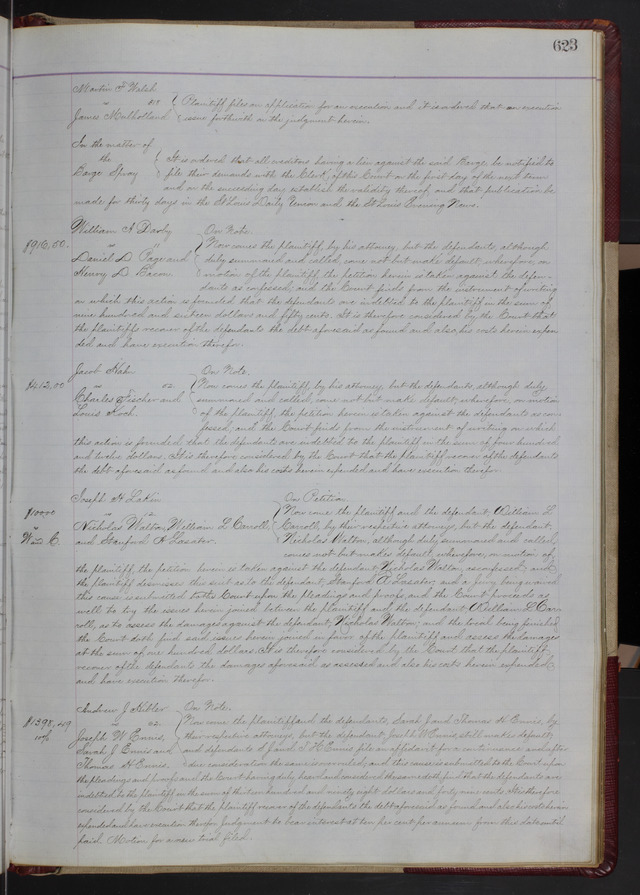 623
Martin F Walsh
" vs Plaintiff files an application for an execution and it is ordered that an execution
James Mulholland issue forthwith on the judgment herein.
In the matter of
the It is ordered that all creditors having a lien against the said Barge be notified to
Barge Spray file their demands with the Clerk of this Court on the first day of the next term
and on the succeeding day establish the validity thereof, and that publication be
made for thirty days in the St Louis Daily Union and the St Louis Evening News.
William I Darby On Note.
$916,50. " " Now comes the plaintiff, by his attorney, but the defendants, although
Daniel D Page and duly summoned and called, come not but make default, wherefore, on
Henry D Bacon motion of the plaintiff, the petition herein is taken against the defen-
dants as confessed, and the Court finds from the instrument of writing
on which this action is founded that the defendants are indebted to the plaintiff in the sum of
nine hundred and sixteen dollars and fifty cents. It is therefore considered by the Court that
the plaintiff recover of the defendants the debt aforesaid as found and also his costs herein expen
ded and have execution therefor.
Jacob On Note.
$412,00 " vs. Now comes the plaintiff, by his attorney, but the defendants, although duly
Charles Fischer and summoned and called, come not but make default, wherefore, on motion
Louis Koch. of the plaintiff, the petition herein is taken against the defendants as con
fessed, and the Court finds from the instrument of writing on which
this action is founded, that the defendants are indebted to the plaintiff in the sum of four hundred
and twelve dollars. It is therefore considered by the Court that the plaintiff recover of the defendants
the debt aforesaid as found and also his costs herein expended and have execution therefor.
Joseph H Lakin On Petition
$100,00 " vs. Now come the plaintiff and the defendant, William L
" Nicholas Walton, William L Carroll Carroll, by their respective attorneys, but the defendant,
W and C. and Stanford A Lasater. Nicholas Walton, although duly summoned and called,
comes not but makes default, wherefore, on motion of
the plaintiff, the petition herein is taken against the defendant Nicholas Walton, as confessed, and
the plaintiff dismisses this suit as to the defendant, Stanford A Lasater, and a jury being waived
this cause is submitted to the Court upon the pleadings and proofs and the Court proceeds as
well to try the issues herein joined between the plaintiff and the defendant William L Car-
roll, as to assess the damages against the defendant, Nicholas Walton, and the trial being finished
the Court doth find said issues herein joined in favor of the plaintiff and assess the damages
at the sum of one hundred dollars. It is therefore considered by the Court that the plaintiff
recover of the defendants the damages aforesaid as assessed and also his costs herein expended
and have execution therefor.
Andrew J Kibler On Note.
$1398,49 " vs. Now come the plaintiff and the defendants, Sarah J and Thomas H Ennis, by
10% Joseph W Ennis, their respective attorneys, but the defendant Joseph W Ennis, still makes default,
Sarah J Ennis and and defendants S J and T H Ennis file an affidavit for a continuance and after
Thomas H Ennis. due consideration the same is overruled, and this cause is submitted to the Court upon
the pleadings and proofs and the Court having duly heard and considered the same doth find that the defendants are
indebted to the plaintiff in the sum of thirteen hundred and ninety eight dollars and forty nine cents. It is therefore
considered by the Court that the plaintiff recover of the defendants the debt aforesaid as found and also his costs herein
expended and have execution therefor. Judgment to bear interest at ten per cent per annum from this date until
paid. Motion for a new trial filed.